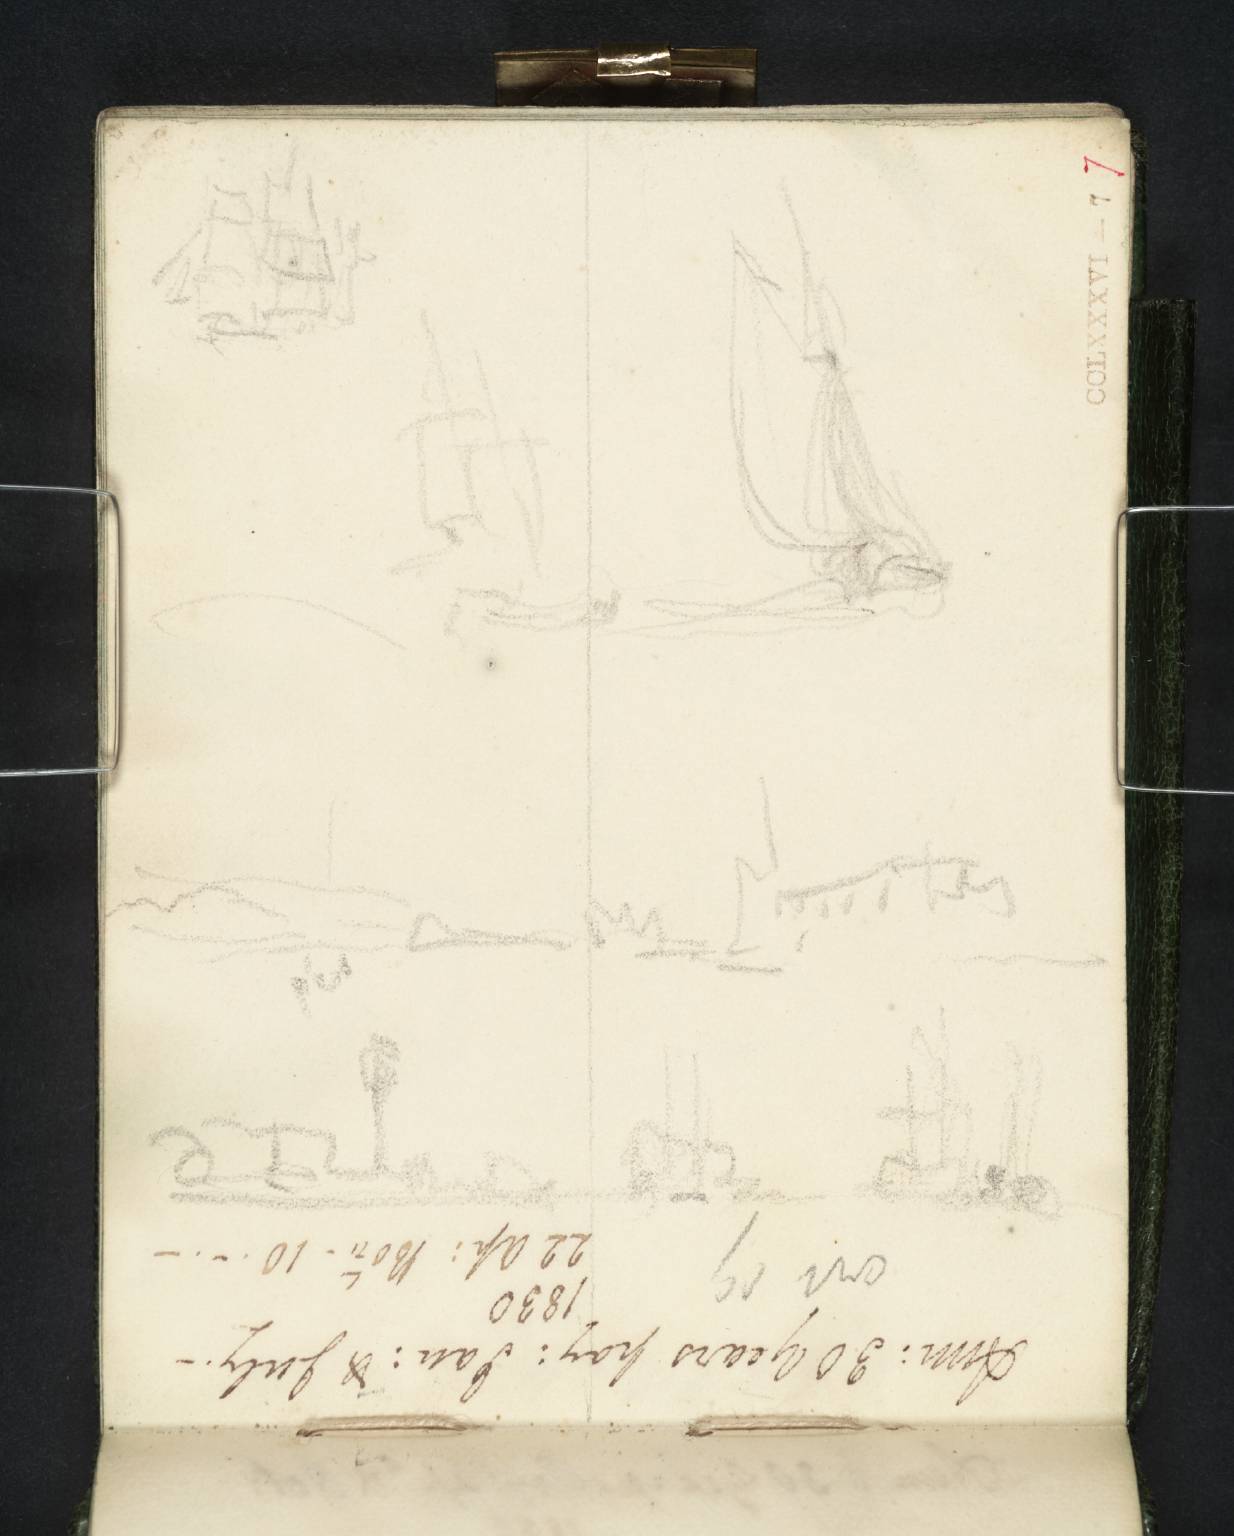 7
CCLXXXVI — 7
Ann: 30 Years pay: Jan: & July. –
1830
22 Ap: Bot. – 10 . – . –